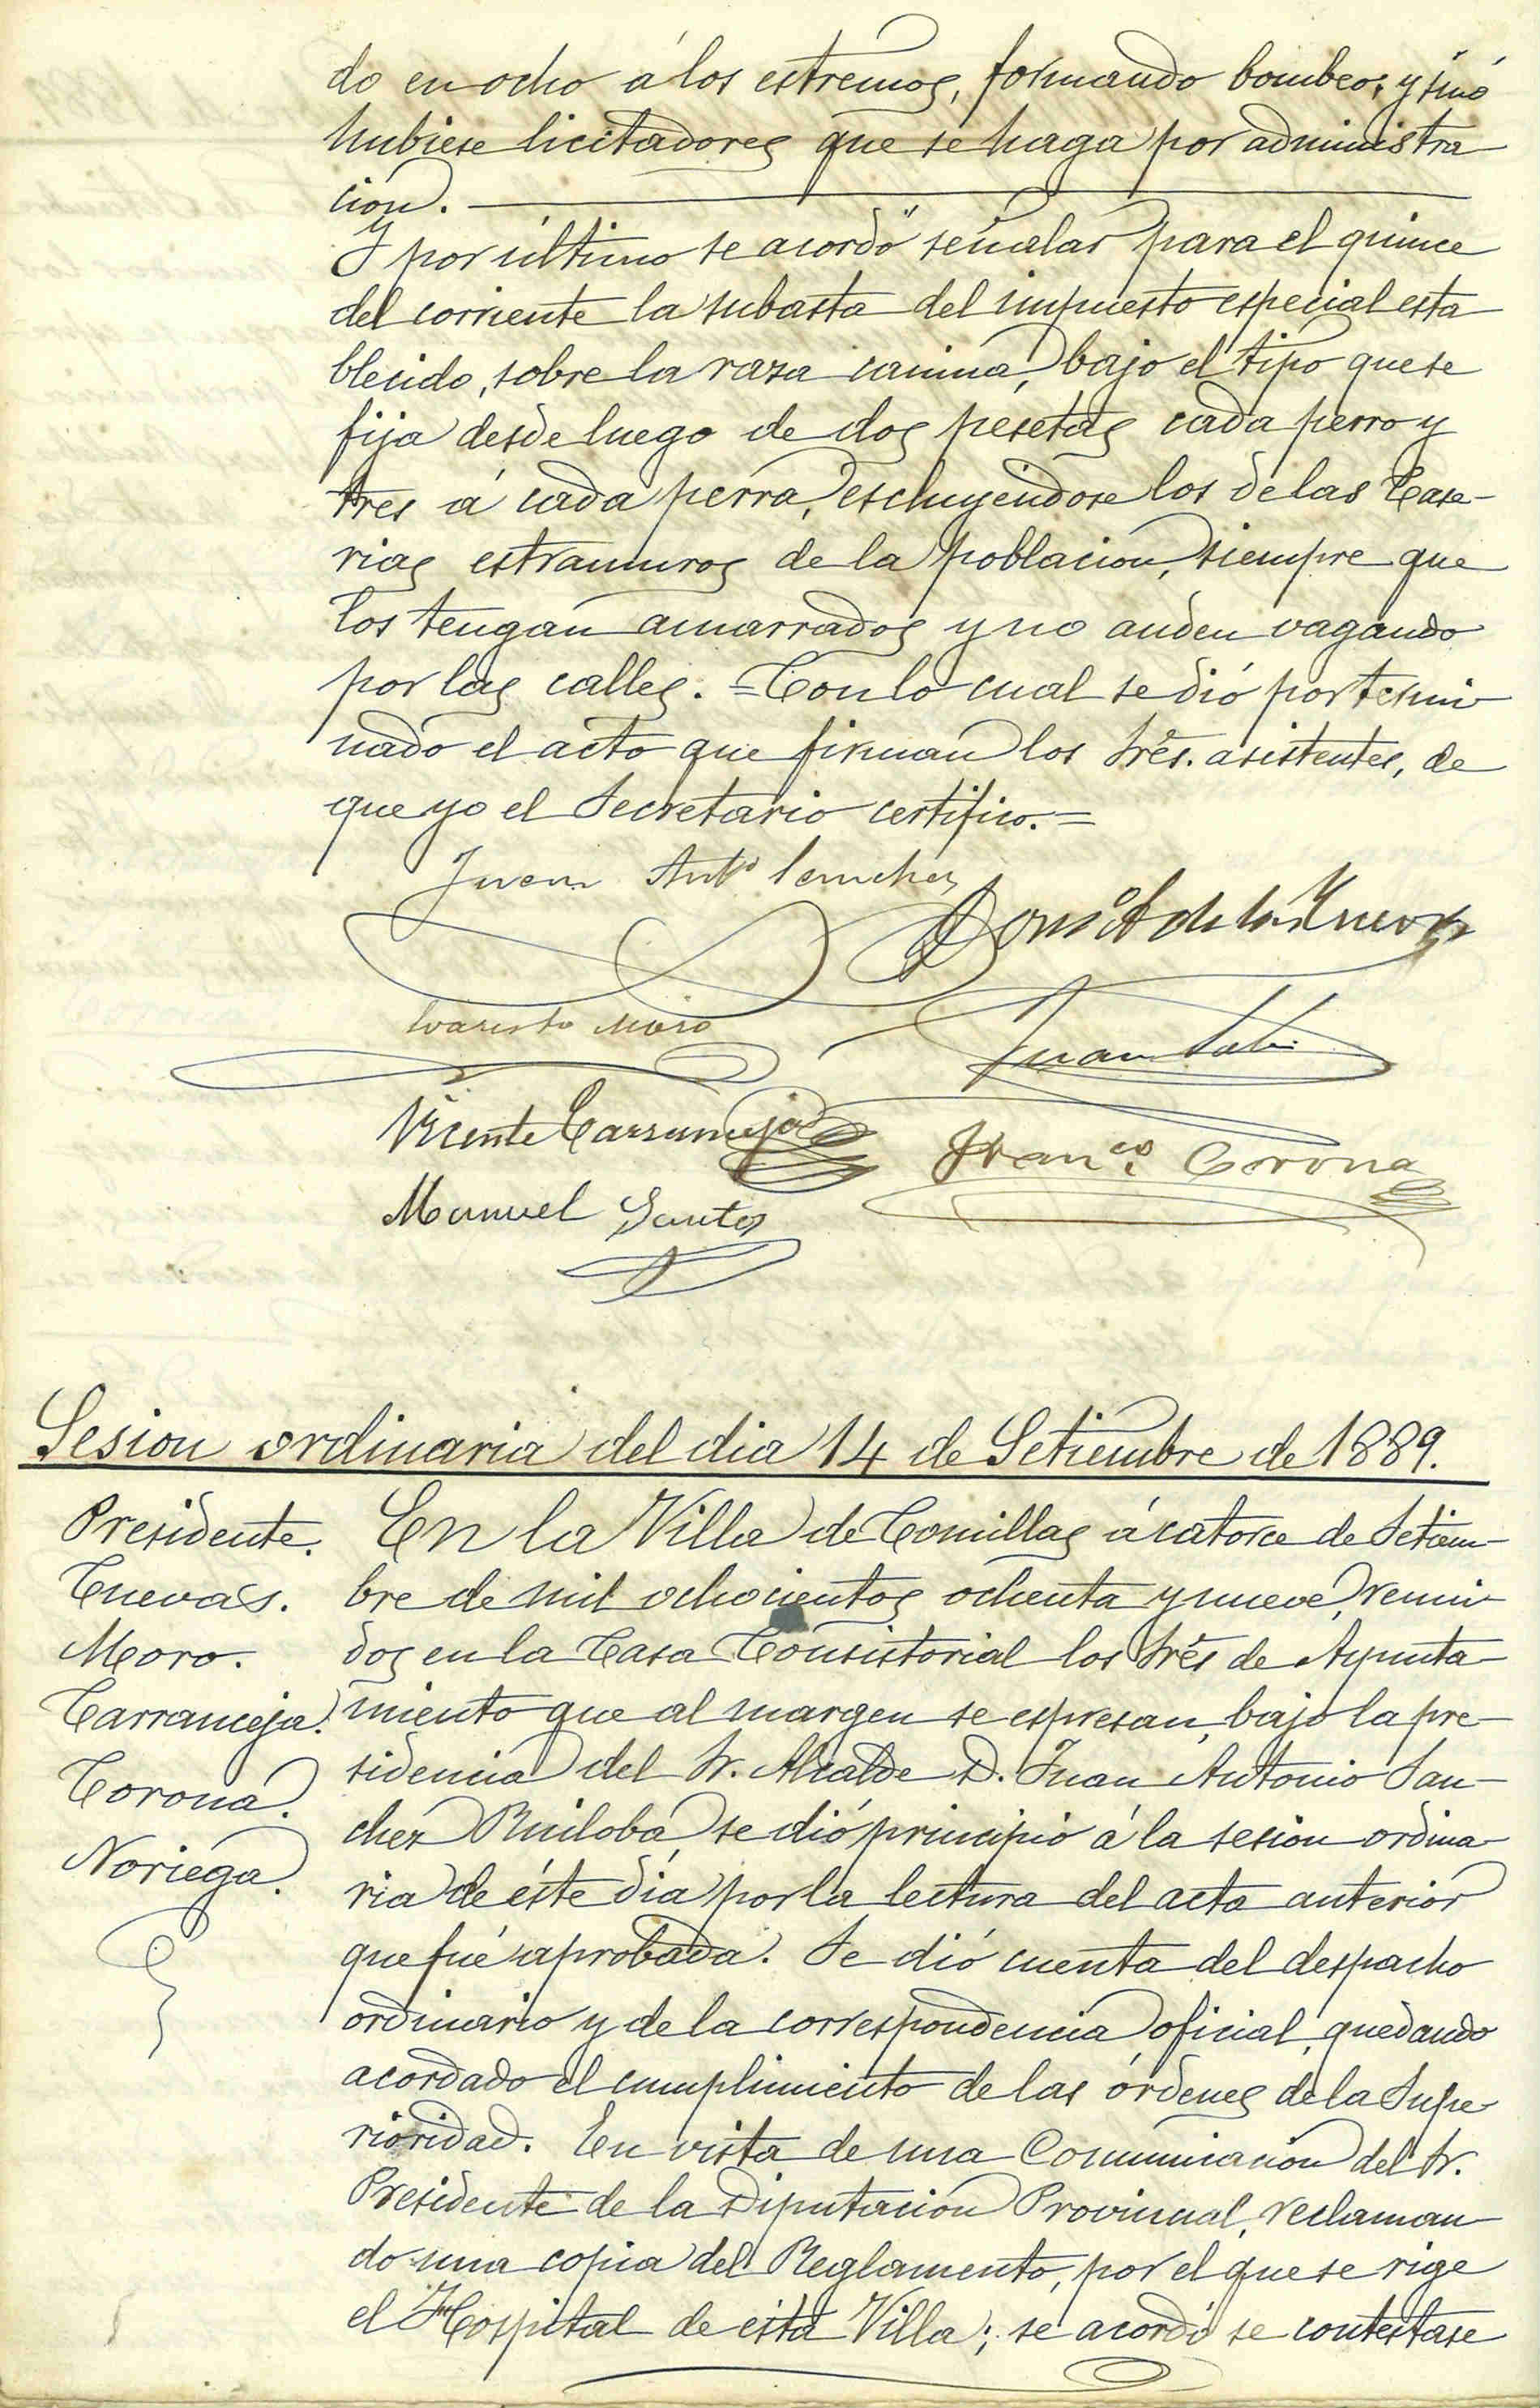 do en ocho á los estremos, formando bombeo; y sinó
hubiese licitadores que se haga por administra
cion.
Y por último se acordó señalar para el quince
del corriente la subasta del impuesto especial esta
blecido, sobre la raza canina, bajo el tipo que se
fija desde luego de dos pesetas cada perro y
tres á cada perra, escluyendose los de las Case-
rias estramuros de la poblacion, siempre que
los tengan amarrados y no anden vagando
por las calles. = Con lo cual se dió por termi
nado el acto que firman los Sres. asistentes, de
que yo el Secretario certifico. =
Juan Anto Sanchez
de las Cuevas
Evaristo Moro
Juan
Vicente Carranceja
Franco. Corona
Manuel Santos
Sesion ordinaria del dia 14 de Setiembre de 1889.
Presidente.
Cuevas.
Moro.
Carranceja.
Corona.
Noriega.
En la Villa de Comillas á catorce de Setiem-
bre de mil ochocientos ochenta y nueve, reuni
dos en la Casa Consistorial los Sres de Ayunta
miento que al margen se espresan, bajo la pre-
sidencia del Sr. Alcalde D. Juan Antonio San-
chez Ruiloba se dió principio á la sesion ordina-
ria de éste dia por la lectura del acta anterior
que fué aprobada. Se dió cuenta del despacho
ordinario y de la correspondencia oficial, quedando
acordado el cumplimiento de las órdenes de la Supe-
rioridad. En vista de una Comunicacion del Sr.
Presidente de la Diputacion Provincial, reclaman-
do una copia del Reglamento, por el que se rige
el Hospital de ésta Villa; se acordó se contestase